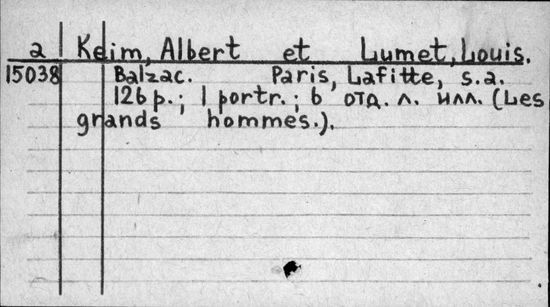 a Keim, Albert et Lumet, Louis.
15038 Balzac. Paris, Lafitte, s.a.
126 p.; 1 portr.; 6 отд. л. илл. (Les
grands hommes.).